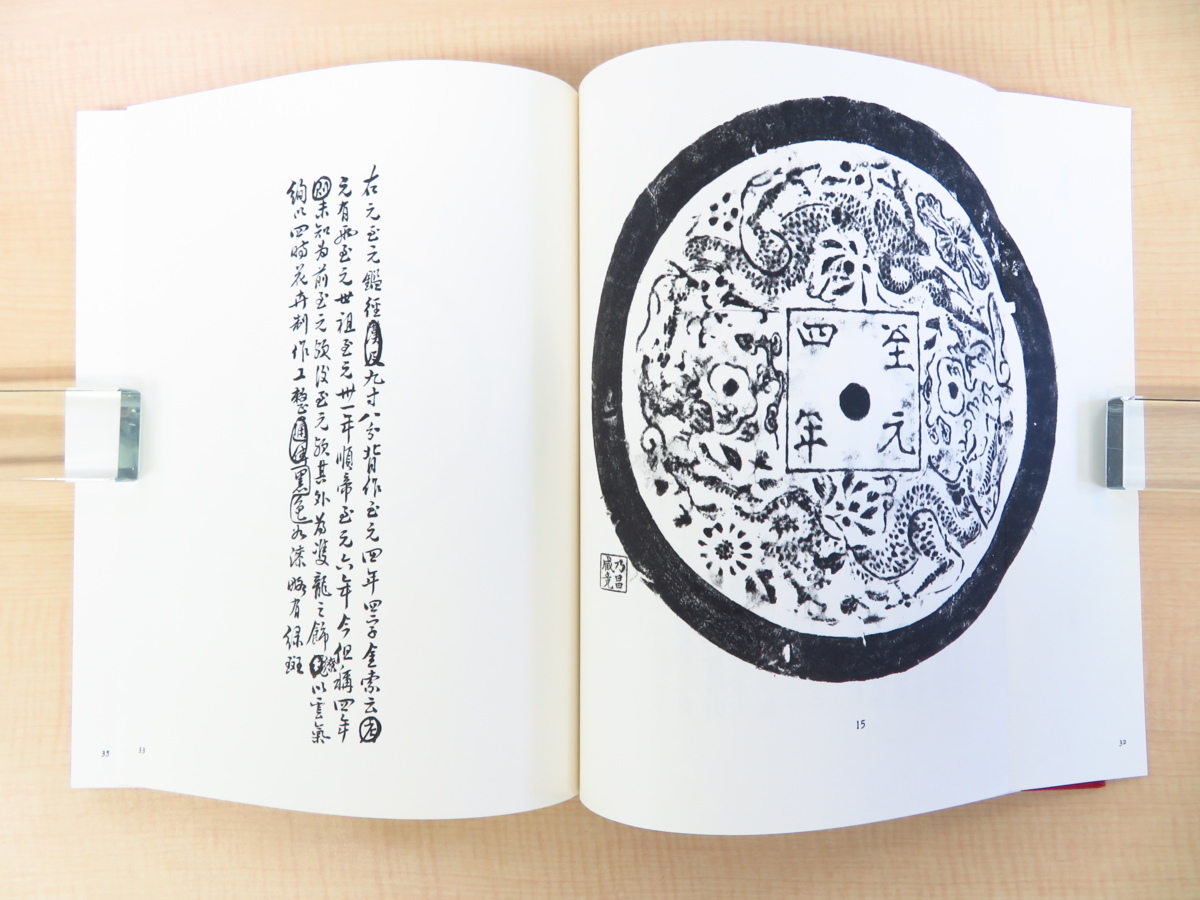 至元
四年
乃昌
藏竟
15
32
右元至元鑑經九寸八分背作至元四年四字金索云
元有兩至元世祖至元卅一年順帝至元六年今但稱四年
未知为前至元後至元其外为雙龍之飾以雲氣
絢以四時花卉制作工整黑色如漆略有綠斑
33
35